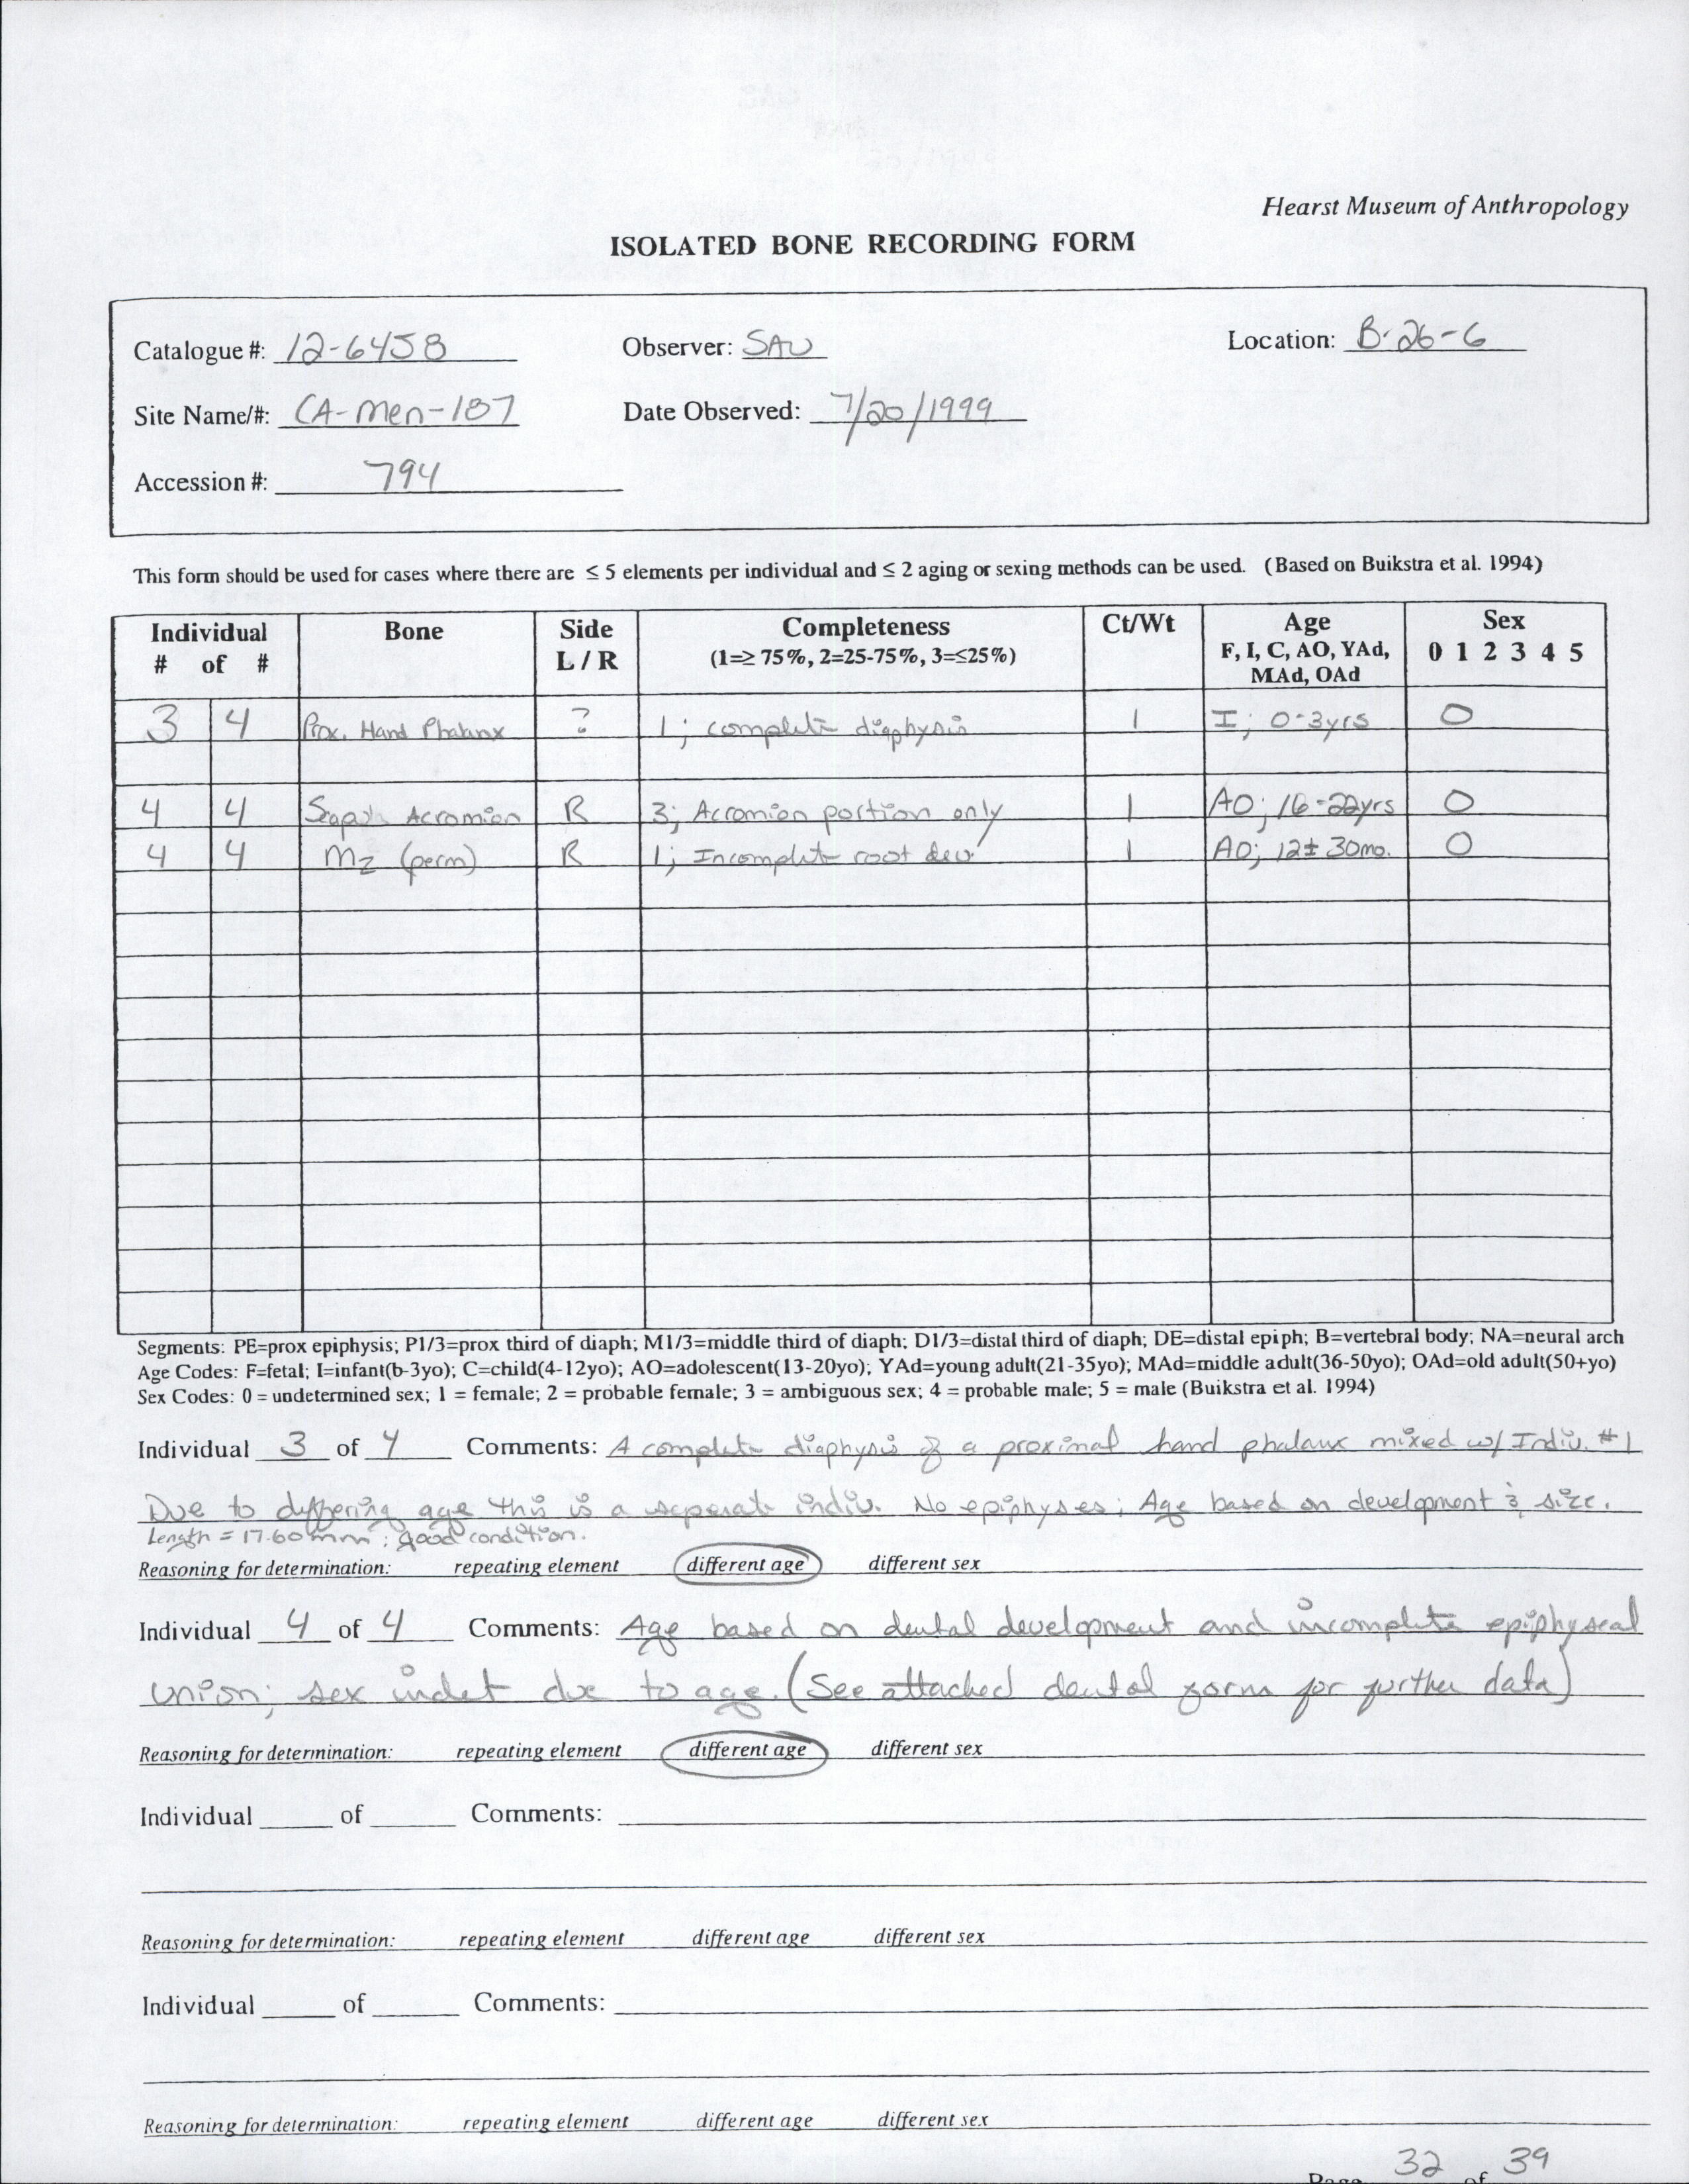 Hearst Museum of Anthropology
ISOLATED BONE RECORDING FORM
Catalogue #: 12-6458 Observer: SAU Location: B-26-6
Site Name/#: CA-Men-187 Date Observed: 7/20/1999
Accession #: 794
This form should be used for cases where there are ≤ 5 elements per individual and ≤ 2 aging or sexing methods can be used. (Based on Buikstra et al. 1994)
Individual Bone Side Completeness Ct/Wt Age Sex
# of # L / R (1=≥ 75%, 2=25-75%, 3=≤25%) F, I, C, AO, YAd, 0 1 2 3 4 5
MAd, OAd
3 4 Prox. Hand Phalanx ? 1; complete diaphysis 1 I; 0-3yrs 0
4 4 Scapula Acromion R 3; Acromion portion only 1 AO; 16-22yrs 0
4 4 M2 (perm) R 1; Incomplete root dev. 1 AO; 12± 30mo. 0
Segments: PE=prox epiphysis; P1/3=prox third of diaph; M1/3=middle third of diaph; D1/3=distal third of diaph; DE=distal epiph; B=vertebral body; NA=neural arch
Age Codes: F=fetal; I=infant(b-3yo); C=child(4-12yo); AO=adolescent(13-20yo); YAd=young adult(21-35yo); MAd=middle adult(36-50yo); OAd=old adult(50+yo)
Sex Codes: 0 = undetermined sex; 1 = female; 2 = probable female; 3 = ambiguous sex; 4 = probable male; 5 = male (Buikstra et al. 1994)
Individual 3 of 4 Comments: A complete diaphysis of a proximal hand phalanx mixed w/ Indiv. #1
Due to differing age this is a seperate indiv. No epiphyses; Age based on development & size.
Length = 17.60mm; good condition.
Reasoning for determination: repeating element different age different sex
Individual 4 of 4 Comments: Age based on dental development and incomplete epiphyseal
union; sex indet due to age. (See attached dental forms for further data)
Reasoning for determination: repeating element different age different sex
Individual of Comments:
Reasoning for determination: repeating element different age different sex
Individual of Comments:
Reasoning for determination: repeating element different age different sex
Page 32 of 39